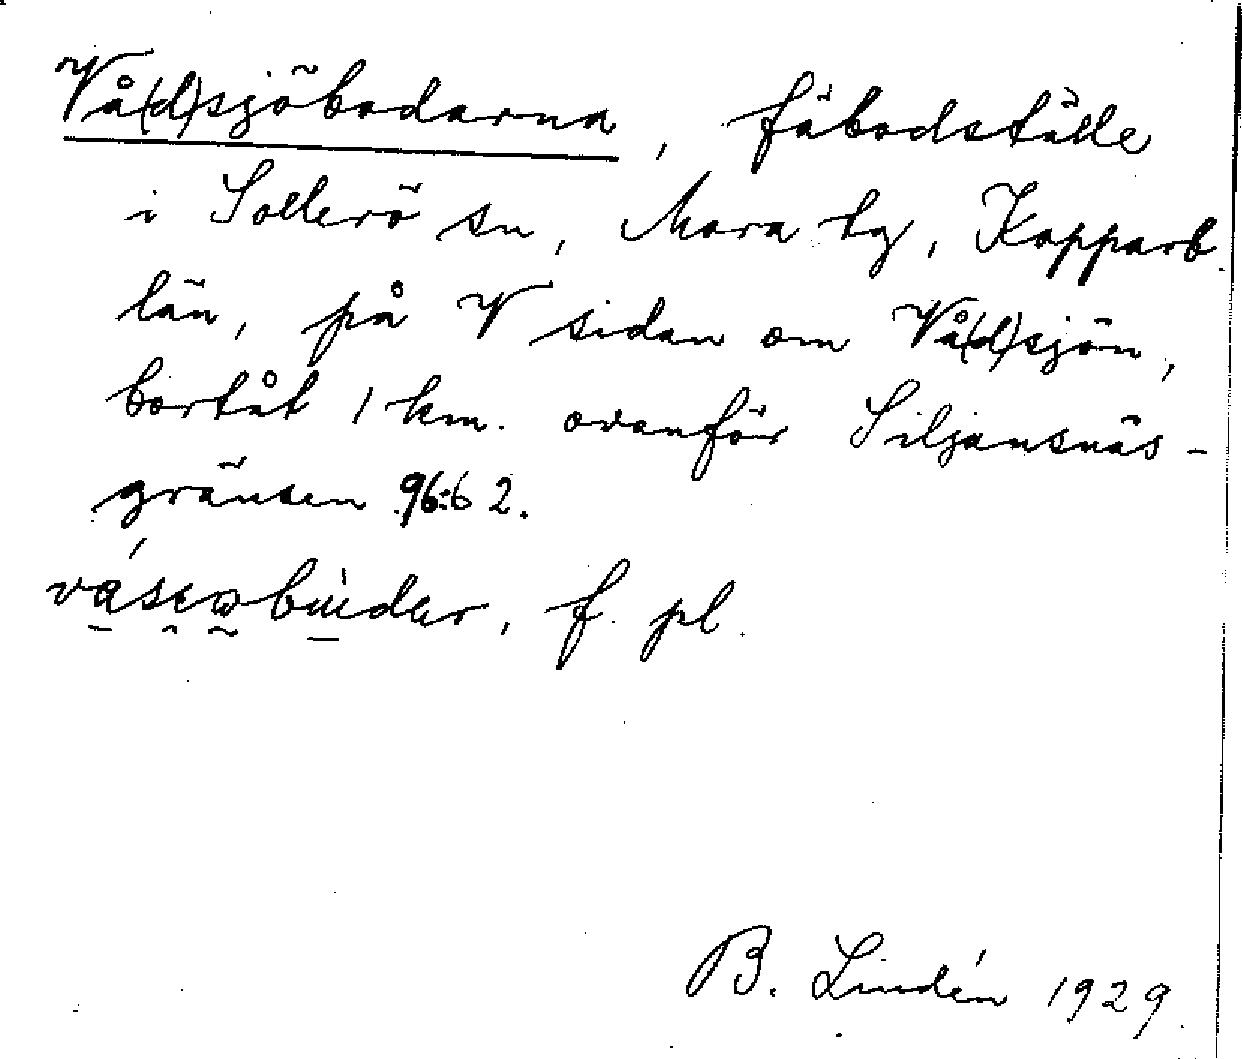 Vå(d)sjöbodarna, fäbodställe
i Sollerö sn, Mora tg, Kopparb.
län, på V sidan om Vå(d)sjön,
bortåt 1 km. ovanför Siljansnäs-
gränsen 96:62.
f. pl.
B. Lindén 1929.